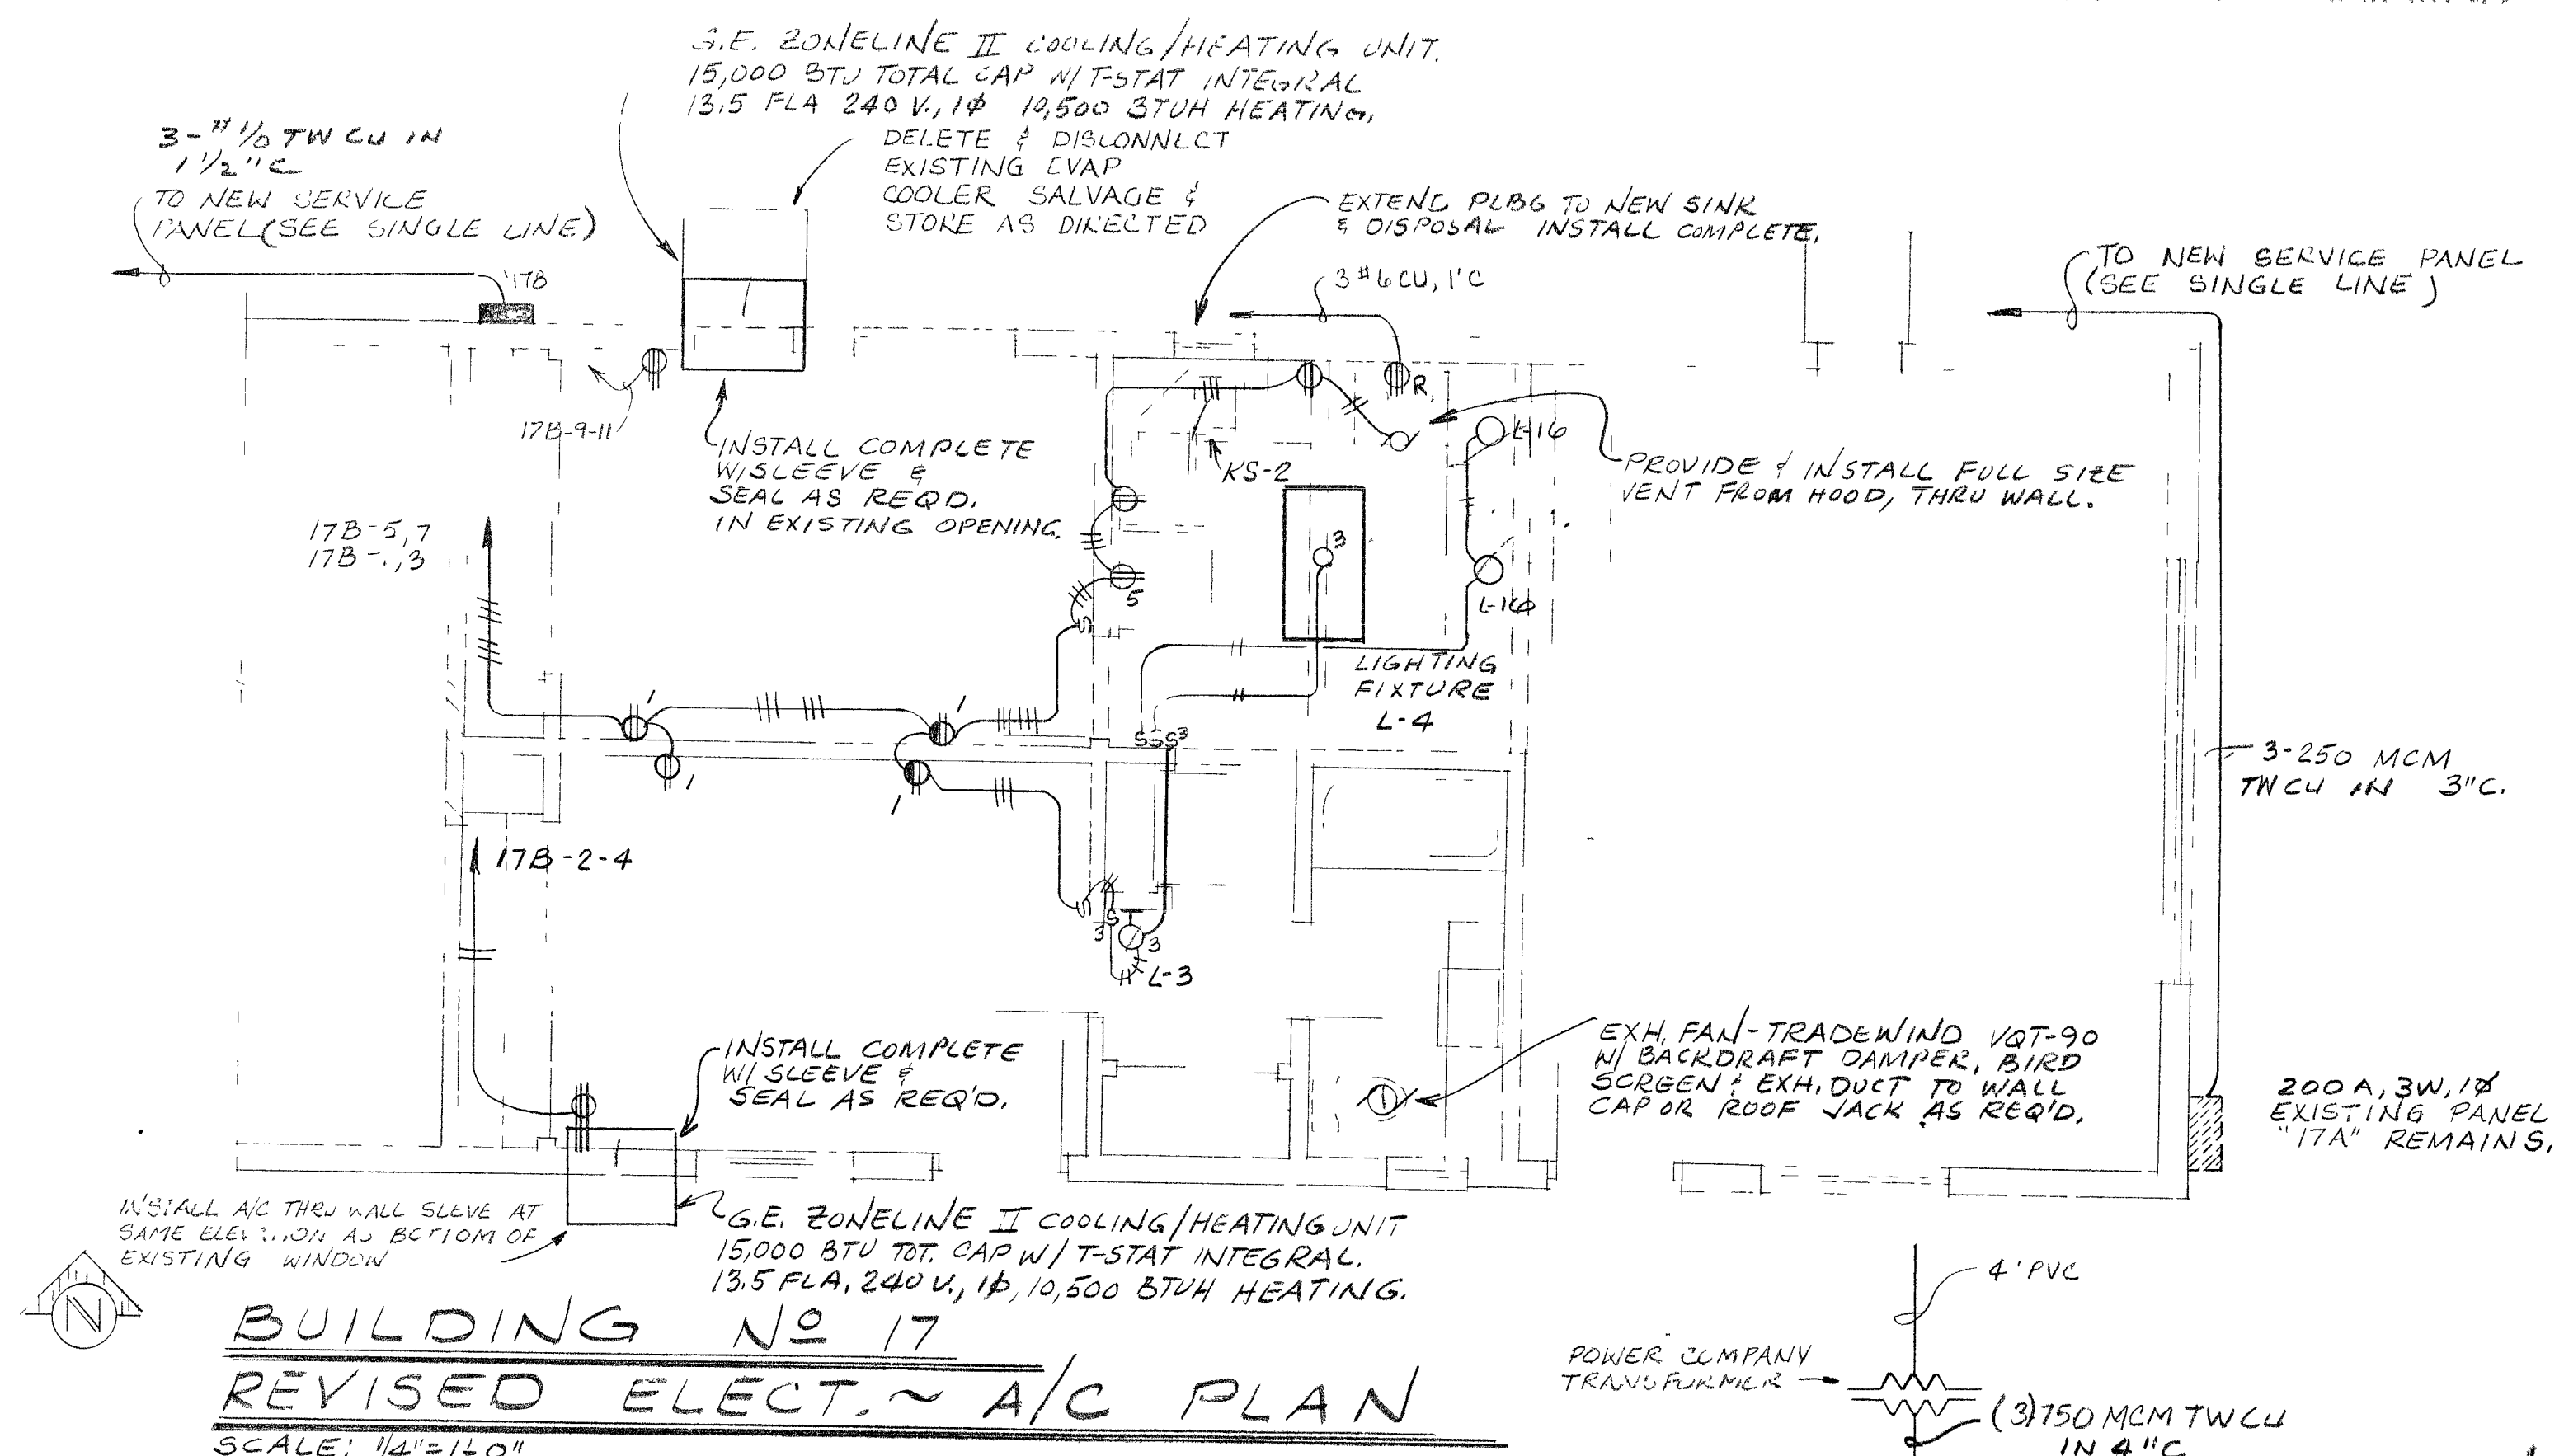 G.E. ZONELINE II COOLING/HEATING UNIT.
15,000 BTU TOTAL CAP W/ T-STAT INTEGRAL
13.5 FLA 240 V., 1Ø 10,500 BTUH HEATING,
DELETE & DISCONNECT
EXISTING EVAP
COOLER SALVAGE &
STORE AS DIRECTED
3-#1/0 TW CU IN
1 1/2"C
TO NEW SERVICE
PANEL (SEE SINGLE LINE)
17B
EXTEND PLBG TO NEW SINK
& DISPOSAL INSTALL COMPLETE.
3#6 CU, 1"C
TO NEW SERVICE PANEL
(SEE SINGLE LINE)
R
17B-9-11
INSTALL COMPLETE
W/SLEEVE &
SEAL AS REQD.
IN EXISTING OPENING.
KS-2
L-16
PROVIDE & INSTALL FULL SIZE
VENT FROM HOOD, THRU WALL.
17B-5,7
3
5
L-16
LIGHTING
FIXTURE
L-4
S S S3
3-250 MCM
TW CU IN 3"C.
1
1
1
1
17B-2-4
S
S
3
3
L-3
INSTALL COMPLETE
W/ SLEEVE &
SEAL AS REQ'D.
EXH. FAN-TRADEWIND VQT-90
W/ BACKDRAFT DAMPER, BIRD
SCREEN & EXH. DUCT TO WALL
CAP OR ROOF JACK AS REQ'D.
200 A, 3W, 1Ø
EXISTING PANEL
"17A" REMAINS.
INSTALL A/C THRU WALL SLEVE AT
SAME AS BOTTOM OF
EXISTING WINDOW
G.E. ZONELINE II COOLING/HEATING UNIT
15,000 BTU TOT. CAP W/ T-STAT INTEGRAL.
13.5 FLA, 240 V., 1Ø, 10,500 BTUH HEATING.
N
BUILDING Nº 17
REVISED ELECT. ~ A/C PLAN
SCALE: 1/4"=1'-0"
4" PVC
POWER COMPANY
TRANSFORMER
(3)750 MCM TW CU
IN 4"C